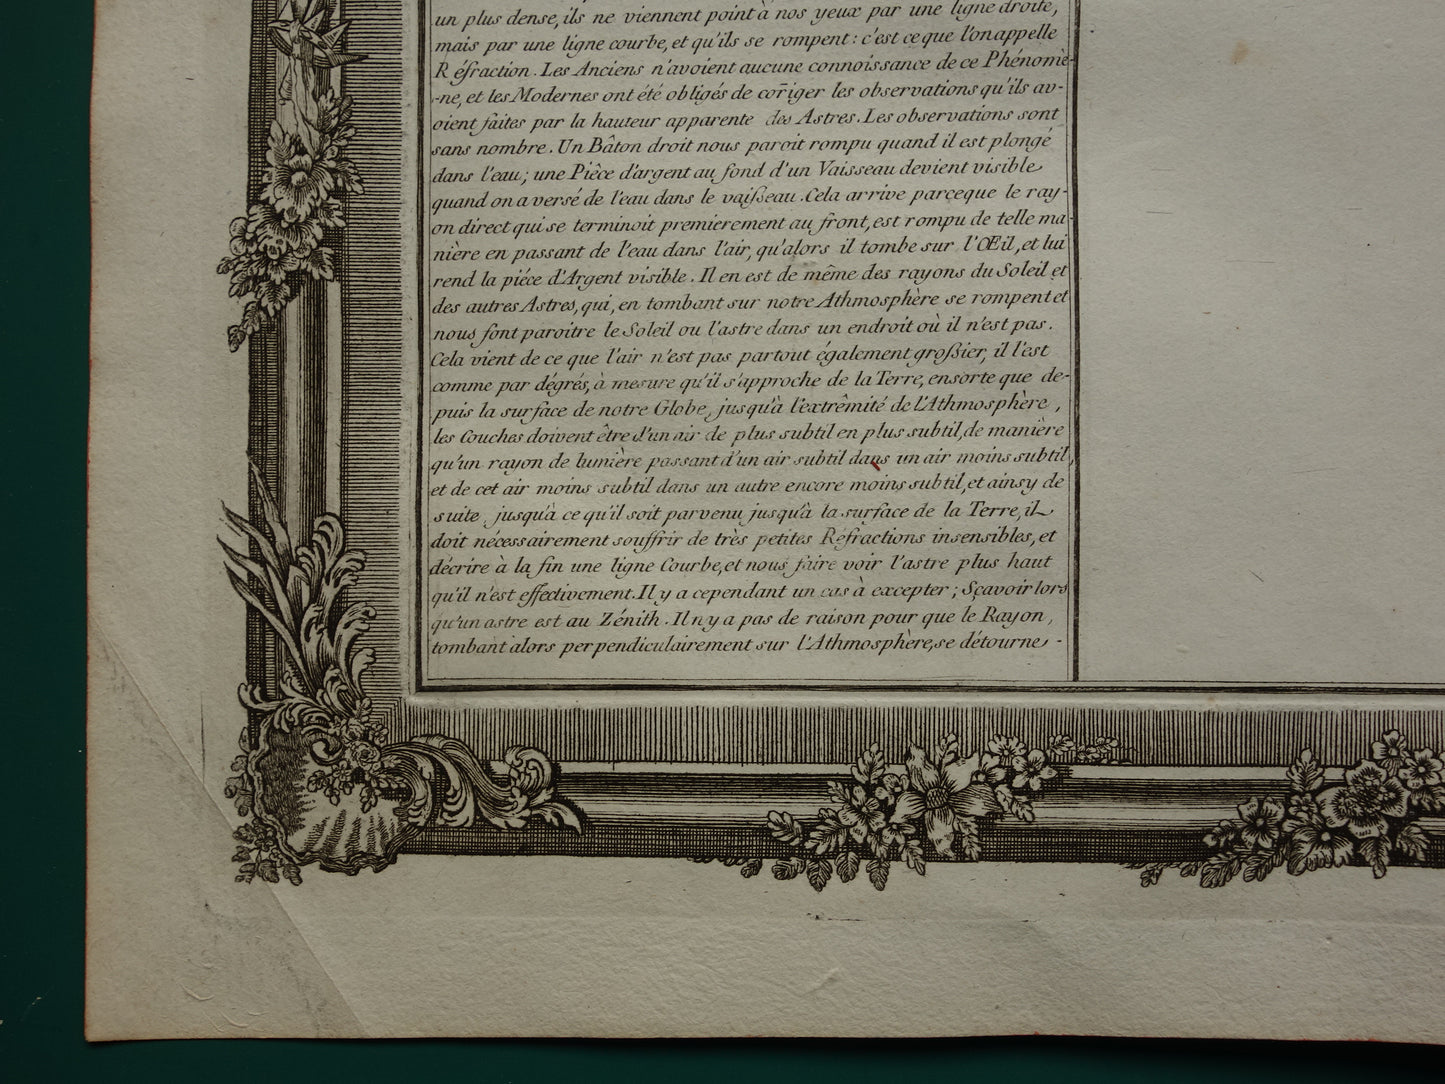 un plus dense, ils ne viennent point à nos yeux par une ligne droite,
mais par une ligne courbe, et qu'ils se rompent : c'est ce que l'on appelle
Réfraction. Les Anciens n'avoient aucune connoissance de ce Phénomè-
-ne, et les Modernes ont été obligés de corriger les observations qu'ils av-
oient faites par la hauteur apparente des Astres. Les observations sont
sans nombre. Un Bâton droit nous paroit rompu quand il est plongé
dans l'eau; une Pièce d'argent au fond d'un Vaisseau devient visible
quand on a versé de l'eau dans le vaißeau. Cela arrive parceque le ray-
on direct qui se terminoit premierement au front, est rompu de telle ma-
nière en passant de l'eau dans l'air, qu'alors il tombe sur l'Œil, et lui
rend la piéce d'Argent visible. Il en est de même des rayons du Soleil et
des autres Astres, qui, en tombant sur notre Athmosphère se rompent et
nous font paroitre le Soleil ou l'astre dans un endroit où il n'est pas.
Cela vient de ce que l'air n'est pas partout également großier, il l'est
comme par dégrés, à mesure qu'il s'approche de la Terre, ensorte que de-
puis la surface de notre Globe, jusqu'à l'extrêmité de l'Athmosphère,
les Couches doivent être d'un air de plus subtil en plus subtil, de manière
qu'un rayon de lumière passant d'un air subtil dans un air moins subtil,
et de cet air moins subtil dans un autre encore moins subtil, et ainsy de
suite jusqu'à ce qu'il soit parvenu jusqu'à la surface de la Terre, il
doit nécessairement souffrir de très petites Réfractions insensibles, et
décrire à la fin une ligne Courbe, et nous faire voir l'astre plus haut
qu'il n'est effectivement. Il y a cependant un cas à excepter ; Sçavoir lors
qu'un astre est au Zénith. Il n'y a pas de raison pour que le Rayon,
tombant alors perpendiculairement sur l'Athmosphère, se détourne -